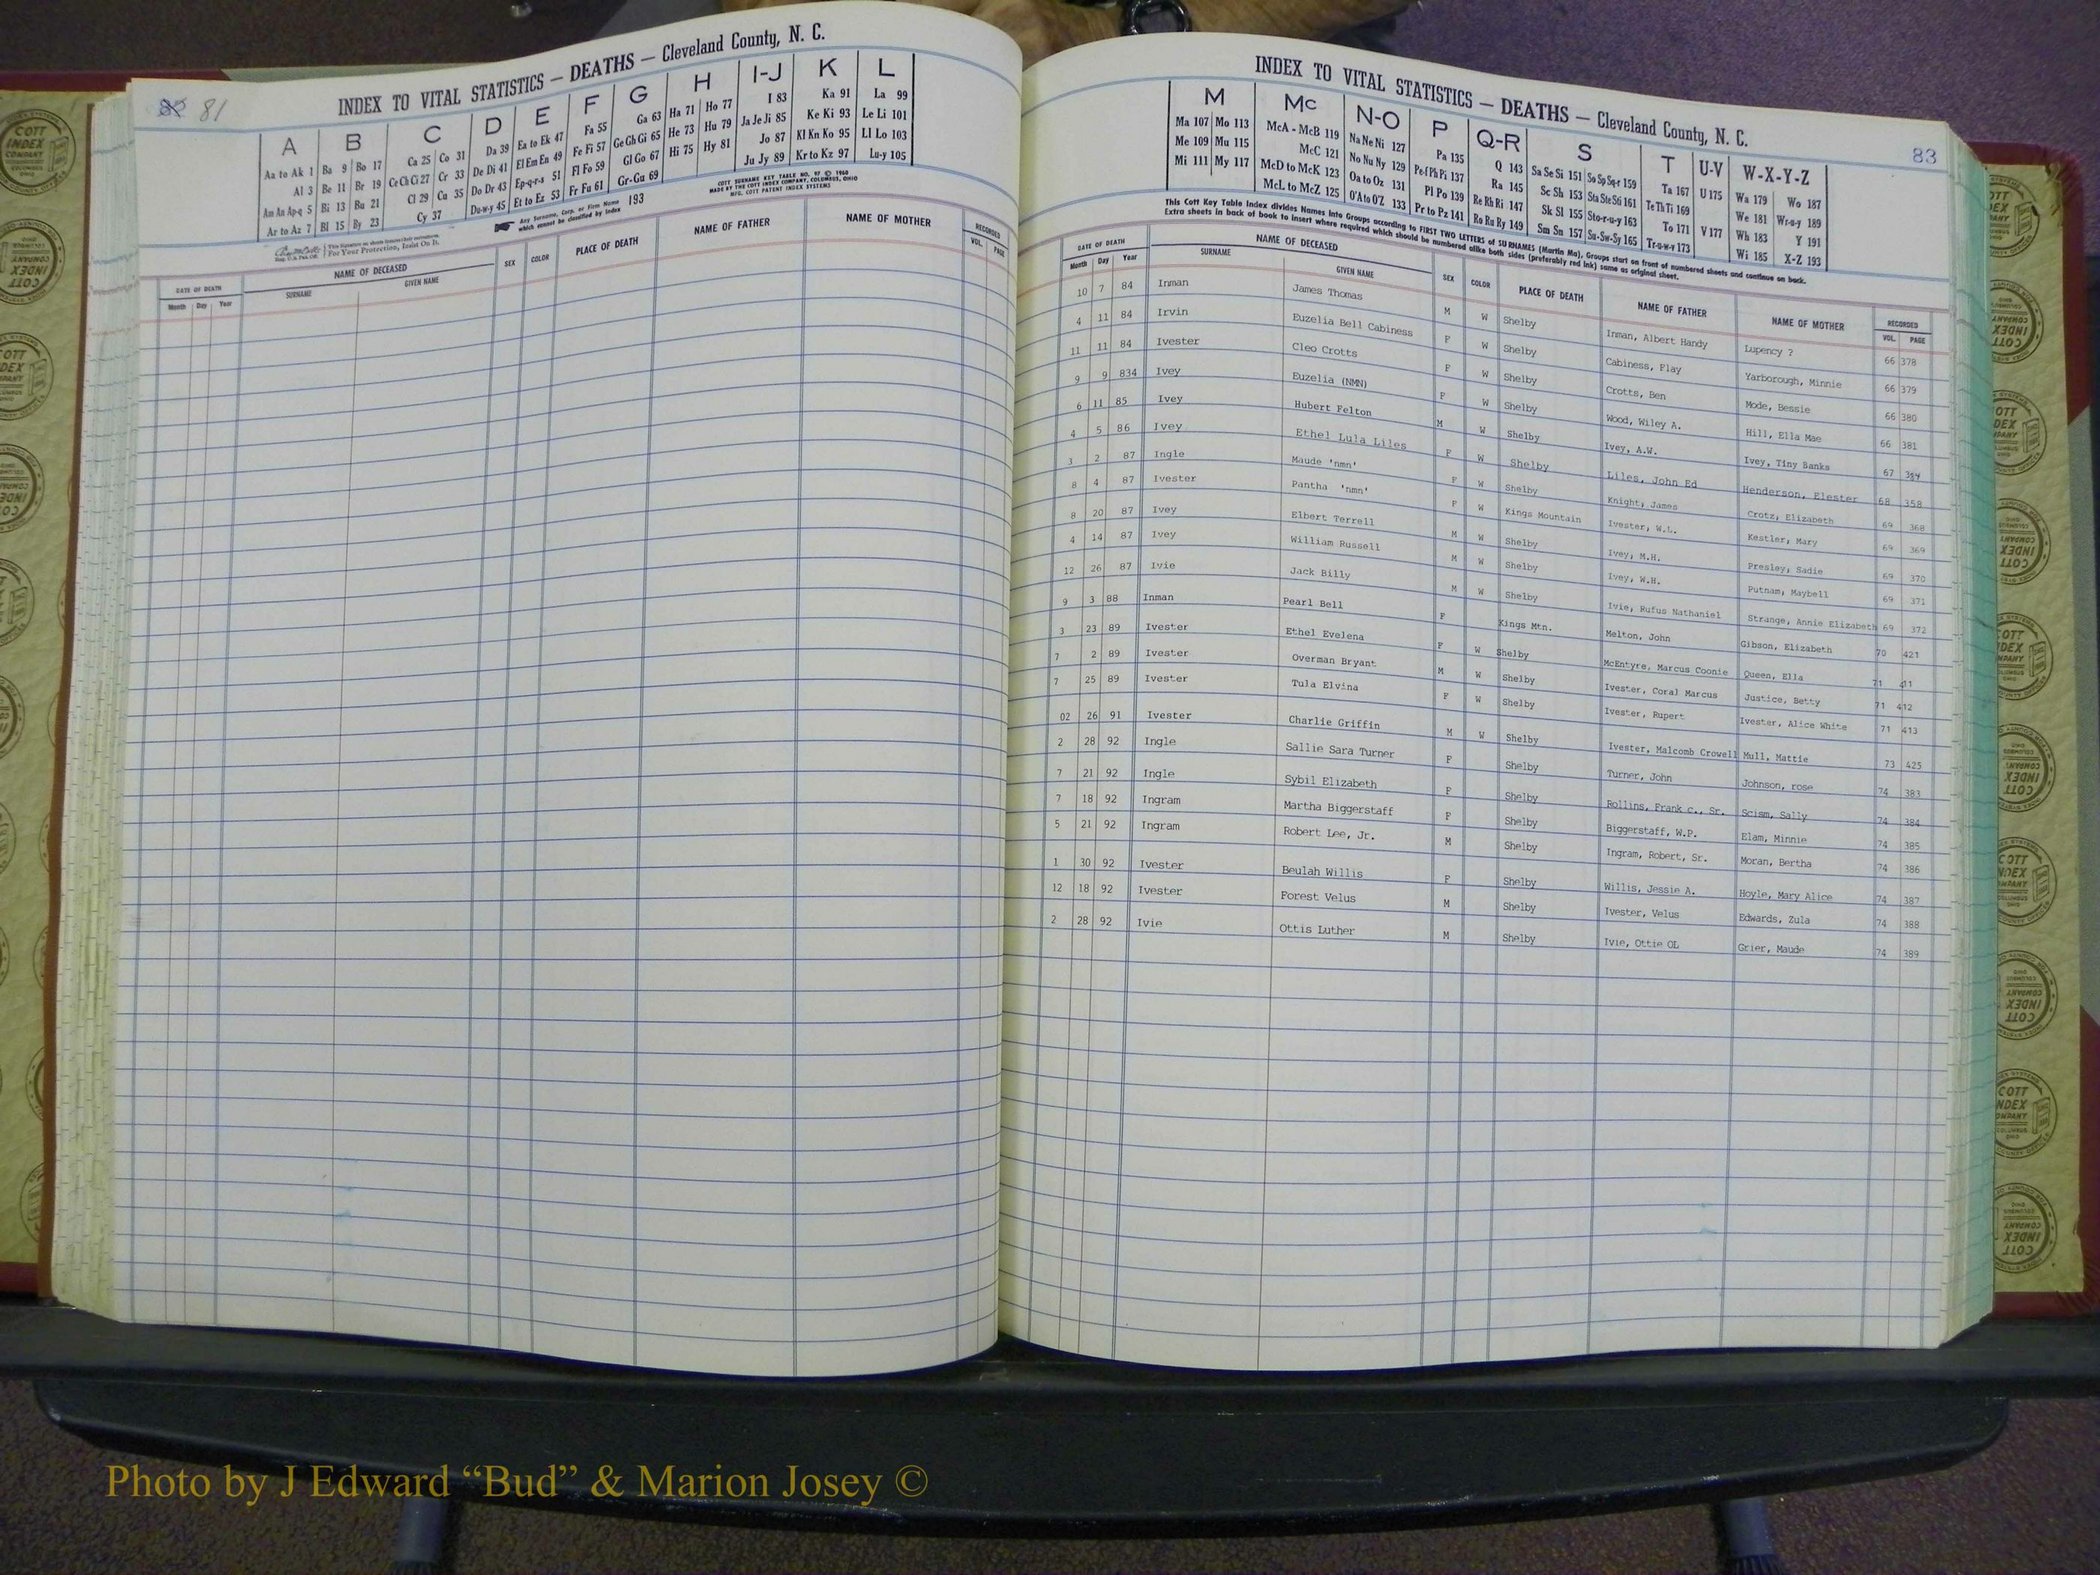 81
INDEX TO VITAL STATISTICS — DEATHS — Cleveland County, N. C.
A B C D E F G H I-J K L
Aa to Ak 1 Ba 9 Bo 17 Ca 25 Co 31 Da 39 Ea to Ek 47 Fa 55 Ga 63 Ha 71 Ho 77 I 83 Ka 91 La 99
Al 3 Be 11 Br 19 Ce Ch Ci 27 Cr 33 De Di 41 El Em En 49 Fe Fi 57 Ge Gh Gi 65 He 73 Hu 79 Ja Je Ji 85 Ke Ki 93 Le Li 101
Am An Ap-q 5 Bi 13 Bu 21 Cl 29 Cu 35 Do Dr 43 Ep-q-r-s 51 Fl Fo 59 Gl Go 67 Hi 75 Hy 81 Jo 87 Kl Kn Ko 95 Ll Lo 103
Ar to Az 7 Bl 15 By 23 Cy 37 Du-w-y 45 Et to Ez 53 Fr Fu 61 Gr-Gu 69 Ju Jy 89 Kr to Kz 97 Lu-y 105
Any Surname, Corp. or Firm Name which cannot be classified by Index 193
COTT SURNAME KEY TABLE NO. 97 © 1960
MADE BY THE COTT INDEX COMPANY, COLUMBUS, OHIO
MFG. COTT PATENT INDEX SYSTEMS
For Your Protection, Insist On It.
DATE OF DEATH NAME OF DECEASED SEX COLOR PLACE OF DEATH NAME OF FATHER NAME OF MOTHER RECORDED
Month Day Year SURNAME GIVEN NAME VOL. PAGE
INDEX TO VITAL STATISTICS — DEATHS — Cleveland County, N. C.
83
M Mc N-O P Q-R S T U-V W-X-Y-Z
Ma 107 Mo 113 McA - McB 119 Na Ne Ni 127 Pa 135 Q 143 Sa Se Si 151 So Sp Sq-r 159 Ta 167 U 175 Wa 179 Wo 187
Me 109 Mu 115 McC 121 No Nu Ny 129 Pe-f Ph Pi 137 Ra 145 Sc Sh 153 Sta Ste Sti 161 Te Th Ti 169 V 177 We 181 Wr-u-y 189
Mi 111 My 117 McD to McK 123 Oa to Oz 131 Pl Po 139 Re Rh Ri 147 Sk Sl 155 Sto-r-u-y 163 To 171 Wh 183 Y 191
McL to McZ 125 O'A to O'Z 133 Pr to Pz 141 Ro Ru Ry 149 Sm Sn 157 Su-Sw-Sy 165 Tr-u-w-y 173 Wi 185 X-Z 193
This Cott Key Table Index divides Names into Groups according to FIRST TWO LETTERS of SURNAMES (Martin Ma), Groups start on front of numbered sheets and continue on back.
Extra sheets in back of book to insert where required which should be numbered alike both sides (preferably red ink) same as original sheet.
DATE OF DEATH NAME OF DECEASED SEX COLOR PLACE OF DEATH NAME OF FATHER NAME OF MOTHER RECORDED
Month Day Year SURNAME GIVEN NAME VOL. PAGE
10 7 84 Inman James Thomas M W Shelby Inman, Albert Handy Lupency ? 66 378
4 11 84 Irvin Euzelia Bell Cabiness F W Shelby Cabiness, Flay Yarborough, Minnie 66 379
11 11 84 Ivester Cleo Crotts F W Shelby Crotts, Ben Mode, Bessie 66 380
9 9 834 Ivey Euzelia (NMN) F W Shelby Wood, Wiley A. Hill, Ella Mae 66 381
6 11 85 Ivey Hubert Felton M W Shelby Ivey, A.W. Ivey, Tiny Banks 67
4 5 86 Ivey Ethel Lula Liles F W Shelby Liles, John Ed Henderson, Elester 68 358
3 2 87 Ingle Maude 'nmn' F W Shelby Knight, James Crotz, Elizabeth 69 368
8 4 87 Ivester Pantha 'nmn' F W Kings Mountain Ivester, W.L. Kestler, Mary 69 369
8 20 87 Ivey Elbert Terrell M W Shelby Ivey, M.H. Presley, Sadie 69 370
4 14 87 Ivey William Russell M W Shelby Ivey, W.H. Putnam, Maybell 69 371
12 26 87 Ivie Jack Billy M W Shelby Ivie, Rufus Nathaniel Strange, Annie Elizabeth 69 372
9 3 88 Inman Pearl Bell F Kings Mtn. Melton, John Gibson, Elizabeth 70 421
3 23 89 Ivester Ethel Evelena F W Shelby McEntyre, Marcus Coonie Queen, Ella 71 411
7 2 89 Ivester Overman Bryant M W Shelby Ivester, Coral Marcus Justice, Betty 71 412
7 25 89 Ivester Tula Elvina F W Shelby Ivester, Rupert Ivester, Alice White 71 413
02 26 91 Ivester Charlie Griffin M W Shelby Ivester, Malcomb Crowell Mull, Mattie 73 425
2 28 92 Ingle Sallie Sara Turner F Shelby Turner, John Johnson, rose 74 383
7 21 92 Ingle Sybil Elizabeth F Shelby Rollins, Frank c., Sr. Scism, Sally 74 384
7 18 92 Ingram Martha Biggerstaff F Shelby Biggerstaff, W.P. Elam, Minnie 74 385
5 21 92 Ingram Robert Lee, Jr. M Shelby Ingram, Robert, Sr. Moran, Bertha 74 386
1 30 92 Ivester Beulah Willis F Shelby Willis, Jessie A. Hoyle, Mary Alice 74 387
12 18 92 Ivester Forest Velus M Shelby Ivester, Velus Edwards, Zula 74 388
2 28 92 Ivie Ottis Luther M Shelby Ivie, Ottie OL Grier, Maude 74 389
Photo by J Edward “Bud” & Marion Josey ©